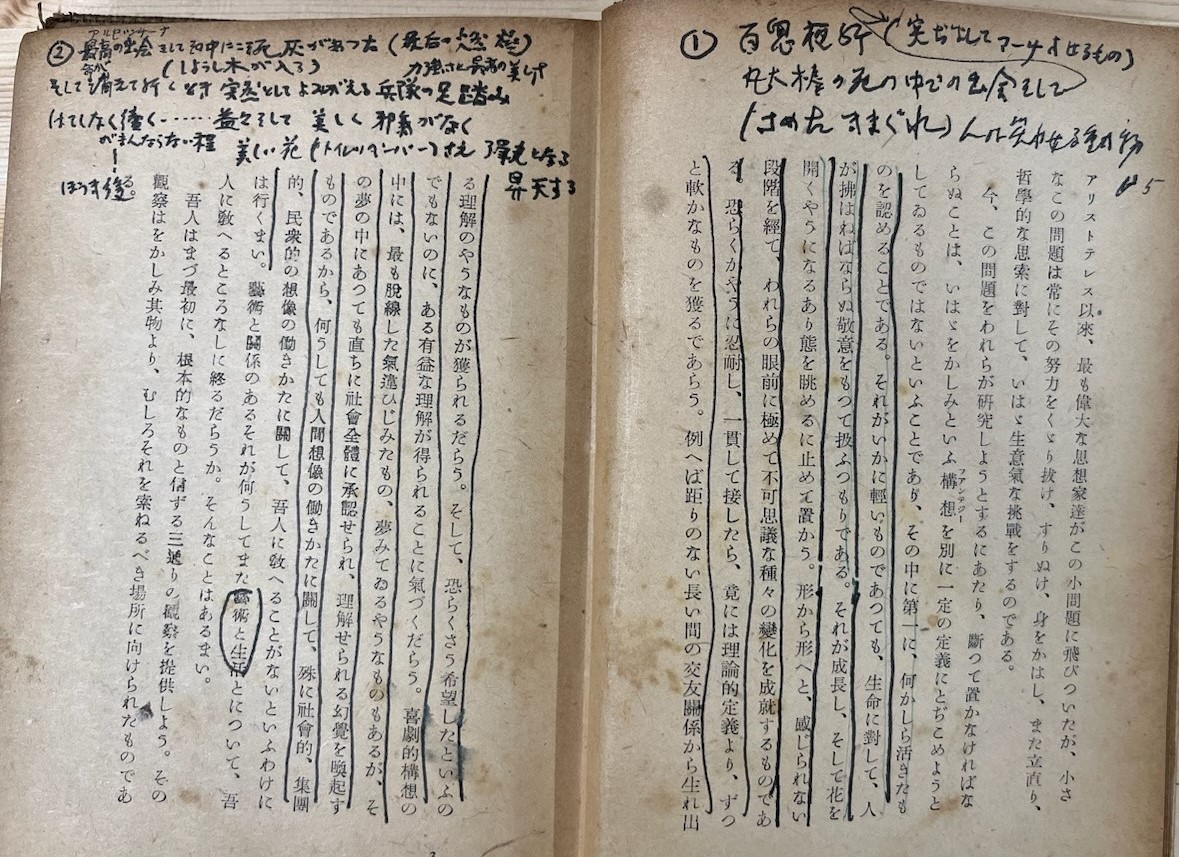 ① 百鬼夜行
丸太棒の死の中での出会そして
アリストテレス以來、最も偉大な思想家達がこの小問題に飛びついたが、小さ
なこの問題は常にその努力をくゞり拔け、すりぬけ、身をかはし、また立直り、
哲學的な思索に對して、いはゞ生意氣な挑戰をするのである。
今、この問題をわれらが硏究しようとするにあたり、斷つて置かなければな
らぬことは、いはゞをかしみといふ構想を別に一定の定義にとぢこめようと
フアンテジー
してゐるものではないといふことであり、その中に第一に、何かしら活きたも
のを認めることである。それがいかに輕いものであつても、生命に對して、人
が拂はねばならぬ敬意をもつて扱ふつもりである。それが成長し、そして花を
開くやうになるあり態を眺めるに止めて置かう。形から形へと、感じられない
段階を經て、われらの眼前に極めて不可思議な種々の變化を成就するものであ
る。恐らくかやうに忍耐し、一貫して接したら、竟には理論的定義より、ずつ
と軟かなものを獲るであらう。例へば距りのない長い間の交友關係から生れ出
② 最高の出会そして
そして消えて行くとき突然としてよみがえる兵隊の足踏み
はてしなく続く……益々そして美しく邪氣がなく
がまんならない程
美しい花(トイレットペーパー)さえ
昇天する
る理解のやうなものが獲られるだらう。そして、恐らくさう希望したといふの
でもないのに、ある有益な理解が得られることに氣づくだらう。喜劇的構想の
中には、最も脫線した氣違ひじみたもの、夢みてゐるやうなものもあるが、そ
の夢の中にあつても直ちに社會全體に承認せられ、理解せられる幻覺を喚起す
ものであるから、何うしても人間想像の働きかたに關して、殊に社會的、集團
的、民衆的の想像の働きかたに關して、吾人に敎へることがないといふわけに
は行くまい。藝術と關係のあるそれが何うしてまた藝術と生活とについて、吾
人に敎へるところなしに終るだらうか。そんなことはあるまい。
吾人はまづ最初に、根本的なものと信ずる三通りの觀察を提供しよう。その
觀察はをかしみ其物より、むしろそれを索ねるべき場所に向けられたものであ
る。